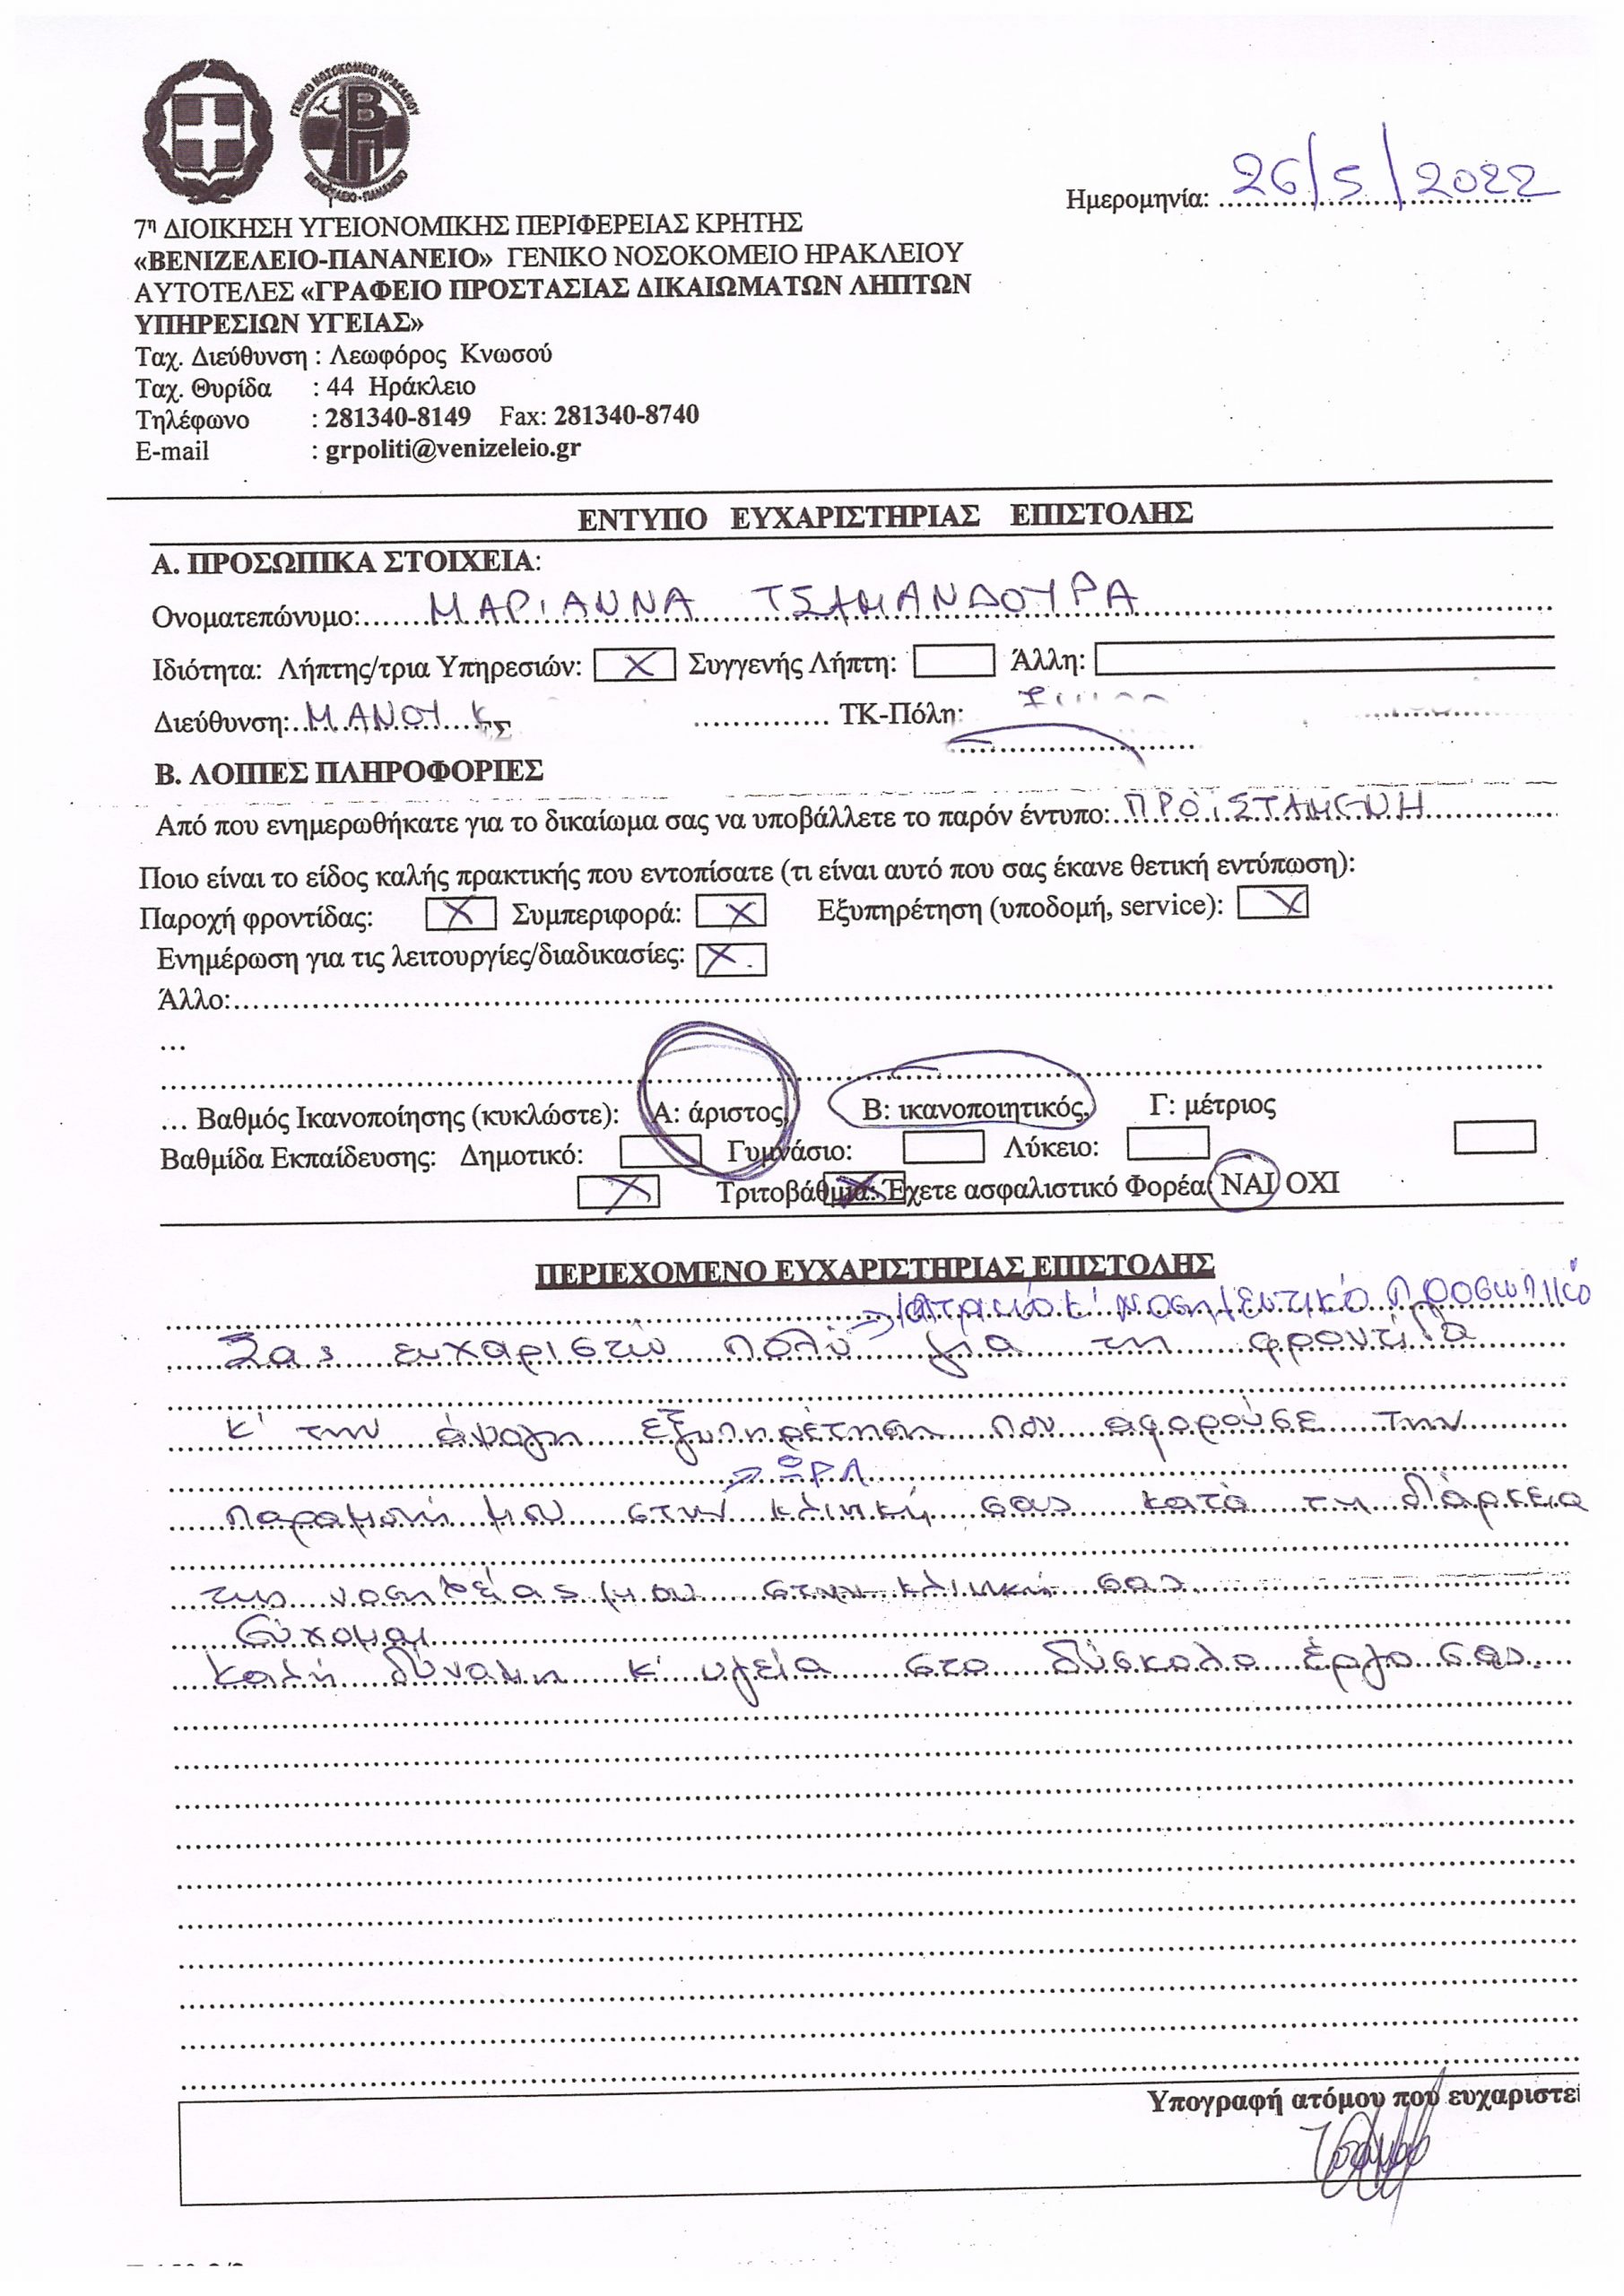 ΓΕΝΙΚΟ ΝΟΣΟΚΟΜΕΙΟ ΗΡΑΚΛΕΙΟΥ
ΒΠ
ΒΕΝΙΖΕΛΕΙΟ-ΠΑΝΑΝΕΙΟ
Ημερομηνία: 26/5/2022
7η ΔΙΟΙΚΗΣΗ ΥΓΕΙΟΝΟΜΙΚΗΣ ΠΕΡΙΦΕΡΕΙΑΣ ΚΡΗΤΗΣ
«ΒΕΝΙΖΕΛΕΙΟ-ΠΑΝΑΝΕΙΟ» ΓΕΝΙΚΟ ΝΟΣΟΚΟΜΕΙΟ ΗΡΑΚΛΕΙΟΥ
ΑΥΤΟΤΕΛΕΣ «ΓΡΑΦΕΙΟ ΠΡΟΣΤΑΣΙΑΣ ΔΙΚΑΙΩΜΑΤΩΝ ΛΗΠΤΩΝ
ΥΠΗΡΕΣΙΩΝ ΥΓΕΙΑΣ»
Ταχ. Διεύθυνση : Λεωφόρος Κνωσού
Ταχ. Θυρίδα : 44 Ηράκλειο
Τηλέφωνο : 281340-8149 Fax: 281340-8740
E-mail : grpoliti@venizeleio.gr
ΕΝΤΥΠΟ ΕΥΧΑΡΙΣΤΗΡΙΑΣ ΕΠΙΣΤΟΛΗΣ
Α. ΠΡΟΣΩΠΙΚΑ ΣΤΟΙΧΕΙΑ:
Ονοματεπώνυμο: ΜΑΡΙΑΝΝΑ ΤΣΑΜΑΝΔΟΥΡΑ
Ιδιότητα: Λήπτης/τρια Υπηρεσιών: X Συγγενής Λήπτη: Άλλη:
Διεύθυνση: ΜΑΝΟΥ ΤΚ-Πόλη:
Β. ΛΟΙΠΕΣ ΠΛΗΡΟΦΟΡΙΕΣ
Από που ενημερωθήκατε για το δικαίωμα σας να υποβάλλετε το παρόν έντυπο: ΠΡΟΪΣΤΑΜΕΝΗ
Ποιο είναι το είδος καλής πρακτικής που εντοπίσατε (τι είναι αυτό που σας έκανε θετική εντύπωση):
Παροχή φροντίδας: X Συμπεριφορά: X Εξυπηρέτηση (υποδομή, service): X
Ενημέρωση για τις λειτουργίες/διαδικασίες: X
Άλλο:
...
... Βαθμός Ικανοποίησης (κυκλώστε): Α: άριστος, Β: ικανοποιητικός, Γ: μέτριος
Βαθμίδα Εκπαίδευσης: Δημοτικό: Γυμνάσιο: Λύκειο:
X Τριτοβάθμια: Έχετε ασφαλιστικό Φορέα ΝΑΙ ΟΧΙ
ΠΕΡΙΕΧΟΜΕΝΟ ΕΥΧΑΡΙΣΤΗΡΙΑΣ ΕΠΙΣΤΟΛΗΣ
→ Ιατρικό κ' Νοσηλευτικό προσωπικό
Σας ευχαριστώ πολύ για τη φροντίδα
κ' την άψογη εξυπηρέτηση που αφορούσε την
→ ΩΡΛ
παραμονή μου στην κλινική σας κατά τη διάρκεια
της νοσηλείας μου στην κλινική σας
Εύχομαι
καλή δύναμη κ' υγεία στο δύσκολο έργο σας.
Υπογραφή ατόμου που ευχαριστεί